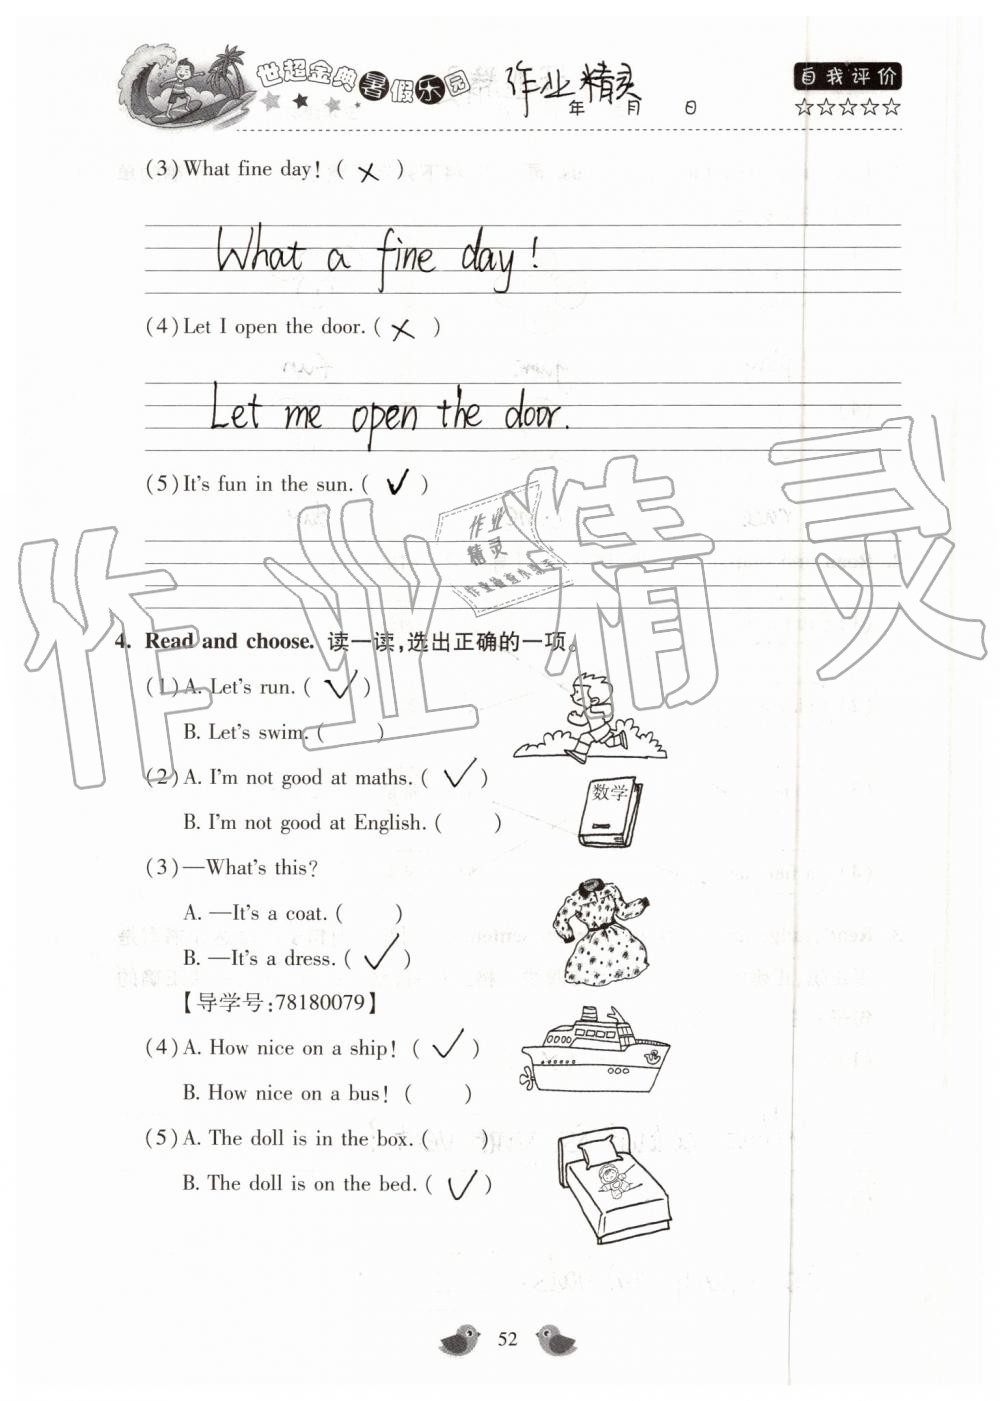 世超金典暑假乐园 作业精灵 自我评价
年 月 日 ☆☆☆☆☆
(3) What fine day! ( × )
What a fine day!
(4) Let I open the door. ( × )
Let me open the door.
(5) It's fun in the sun. ( ✓ )
作业
精灵
作业精灵
4. Read and choose. 读一读,选出正确的一项。
(1) A. Let's run. ( ✓ )
B. Let's swim. ( )
(2) A. I'm not good at maths. ( ✓ )
数学
B. I'm not good at English. ( )
(3) —What's this?
A. —It's a coat. ( )
B. —It's a dress. ( ✓ )
【导学号:78180079】
(4) A. How nice on a ship! ( ✓ )
B. How nice on a bus! ( )
(5) A. The doll is in the box. ( )
B. The doll is on the bed. ( ✓ )
52